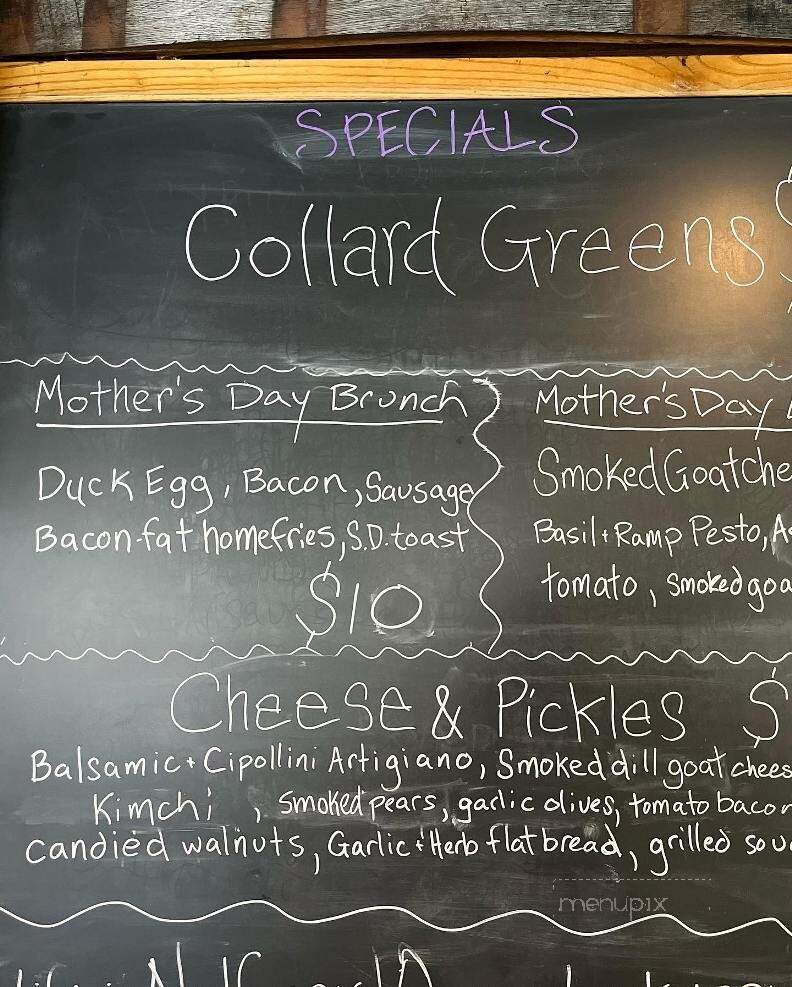 SPECIALS
Collard Greens $
Mother's Day Brunch
Duck Egg, Bacon, Sausage
Bacon-fat homefries, S.D. toast
$10
Mother's Day
Smoked Goat che
Basil + Ramp Pesto, A
tomato, smoked goa
Cheese & Pickles $
Balsamic + Cipollini Artigiano, Smoked dill goat chees
Kimchi , smoked pears, garlic olives, tomato bacon
candied walnuts, Garlic + Herb flatbread, grilled sou
menupix